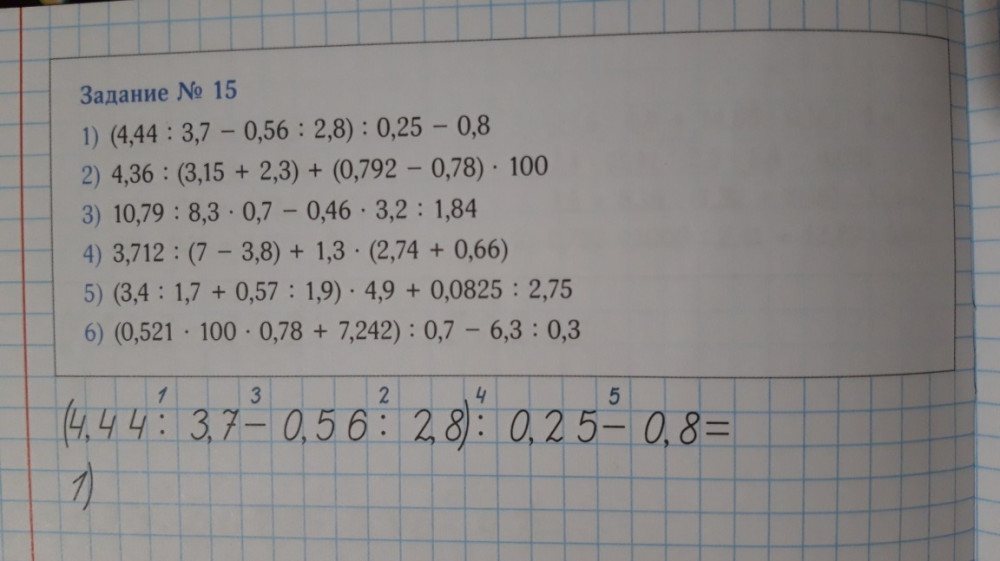 Задание № 15
1) (4,44 : 3,7 − 0,56 : 2,8) : 0,25 − 0,8
2) 4,36 : (3,15 + 2,3) + (0,792 − 0,78) · 100
3) 10,79 : 8,3 · 0,7 − 0,46 · 3,2 : 1,84
4) 3,712 : (7 − 3,8) + 1,3 · (2,74 + 0,66)
5) (3,4 : 1,7 + 0,57 : 1,9) · 4,9 + 0,0825 : 2,75
6) (0,521 · 100 · 0,78 + 7,242) : 0,7 − 6,3 : 0,3
1 3 2 4 5
(4,44 : 3,7 − 0,56 : 2,8) : 0,25 − 0,8 =
1)